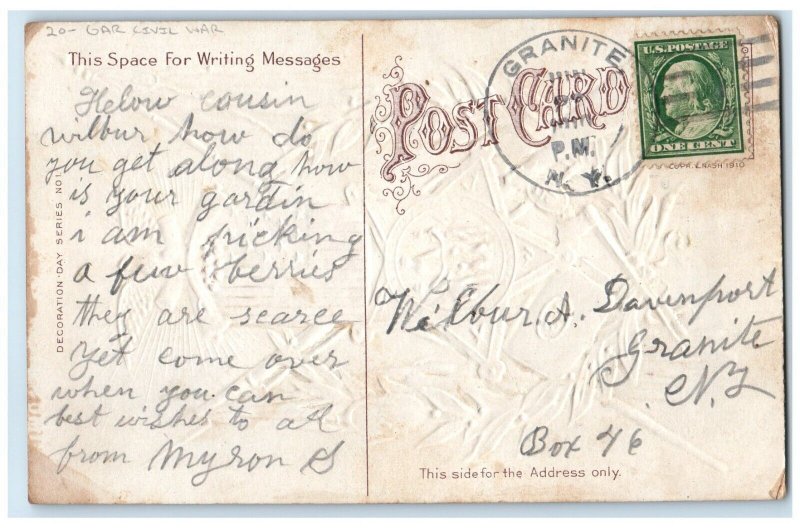 20- GAR CIVIL WAR
This Space For Writing Messages
Helow cousin
wilbur how do
you get along how
is your gardin
i am picking
a few sberries
they are scarce
yet come over
when you can
best wishes to all
from Myron S
DECORATION DAY SERIES NO1
POST CARD
GRANITE
P.M.
N.Y.
U.S. POSTAGE
ONE CENT
COPR. E.NASH 1910
Wilbur. A. Davenport
Granite
N.Y
Box 46
This side for the Address only.